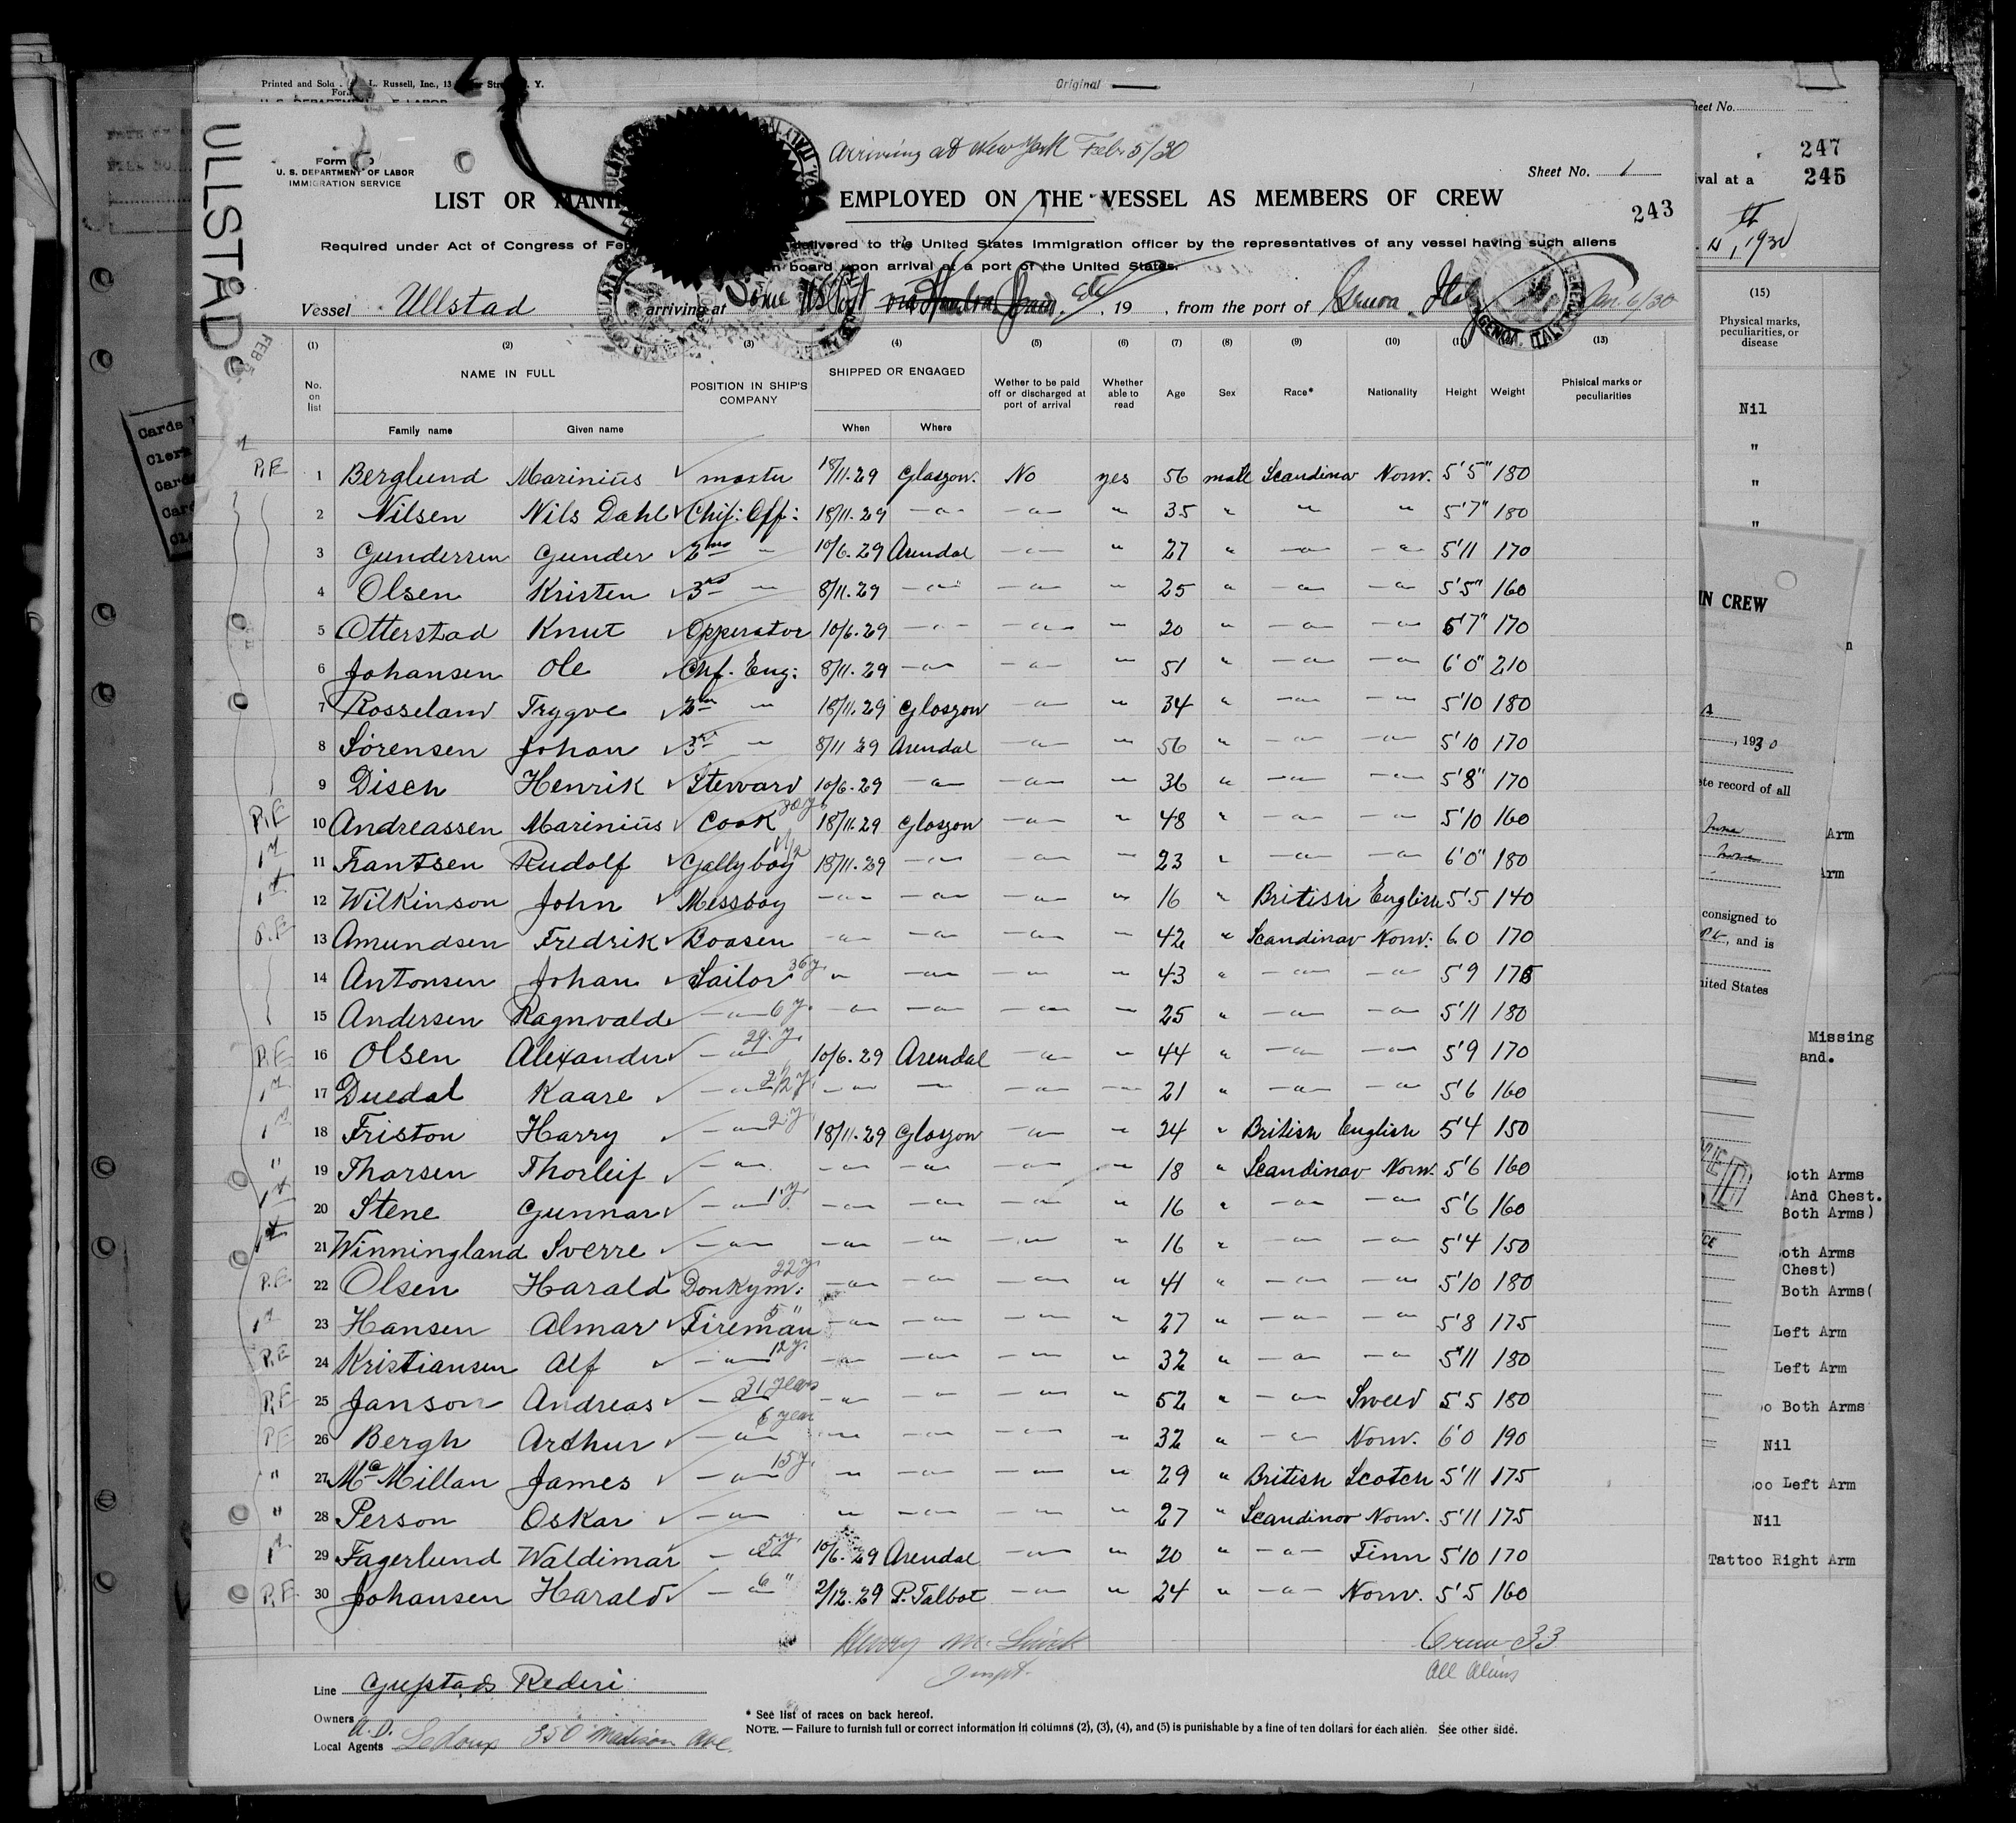 Printed and Sold L. Russell, Inc., 13 N. Y.
Original
ULLSTAD
Form
U. S. DEPARTMENT OF LABOR
IMMIGRATION SERVICE
Arriving at New York Feb. 5/30
Sheet No. 1
LIST OR EMPLOYED ON THE VESSEL AS MEMBERS OF CREW
243
Required under Act of Congress of delivered to the United States Immigration officer by the representatives of any vessel having such aliens
on board upon arrival at a port of the United States.
Vessel Ullstad arriving at Some 19 , from the port of Genoa Jan 6/30
GENOA, ITALY
FEB 5
(1) (2) (3) (4) (5) (6) (7) (8) (9) (10) (13)
No. on list NAME IN FULL POSITION IN SHIP'S COMPANY SHIPPED OR ENGAGED Wether to be paid off or discharged at port of arrival Whether able to read Age Sex Race* Nationality Height Weight Phisical marks or peculiarities
Family name Given name When Where
P.E 1 Berglund Marinius master 18/11.29 Glasgow. No yes 56 male Scandinav Norw. 5'5" 180
2 Nilsen Nils Dahl Chif: Off: 18/11.29 -"- -"- " 35 " " " 5'7" 180
3 Gundersen Gunder 2nd " 10/6.29 Arendal -"- " 27 " -"- -"- 5'11 170
4 Olsen Kristen 3rd " 8/11.29 -"- -"- " 25 " -"- -"- 5'5" 160
5 Otterstad Knut Opperator 10/6.29 -"- -"- " 20 " -"- -"- 5'7" 170
6 Johansen Ole Chf. Eng: 8/11.29 -"- -"- " 51 " -"- -"- 6'0" 210
7 Rosseland Trygve 2nd " 18/11.29 Glasgow -"- " 34 " -"- -"- 5'10 180
8 Sørensen Johan 3rd " 8/11 29 Arendal -"- " 56 " -"- -"- 5'10 170
9 Disch Henrik Steward 10/6.29 -"- -"- " 36 " -"- -"- 5'8" 170
P.E 10 Andreassen Marinius Cook 18/11.29 Glasgow -"- " 48 " -"- -"- 5'10 160
11 Frantsen Rudolf Gallyboy 18/11.29 -"- -"- " 23 " -"- -"- 6'0" 180
12 Wilkinson John Messboy -"- -"- -"- " 16 " British English 5'5 140
P.E 13 Amundsen Fredrik Boosen -"- -"- -"- " 42 " Scandinav Norw: 6 0 170
14 Antonsen Johan Sailor 36 y. " -"- -"- " 43 " -"- -"- 5'9 175
15 Andersen Ragnvald -"- 6 y. -"- -"- -"- " 25 " -"- -"- 5'11 180
P.E 16 Olsen Alexander -"- 29. y. 10/6.29 Arendal -"- " 44 " -"- -"- 5'9 170
17 Duedal Kaare -"- 2 1/2 y. -"- -"- -"- -"- 21 " -"- -"- 5'6 160
18 Friston Harry -"- 2 y 18/11.29 Glasgow -"- " 24 " British English 5'4 150
" 19 Tharsen Thorleif -"- -"- -"- -"- " 18 " Scandinav Norw. 5'6 160
20 Stene Gunnar -"- 1. y. -"- -"- -"- " 16 " -"- -"- 5'6 160
21 Winningland Sverre -"- -"- -"- -"- " 16 " -"- -"- 5'4 150
P.E. 22 Olsen Harald Donkym. 22 y. -"- -"- -"- " 41 " -"- -"- 5'10 180
23 Hansen Almar Fireman 5 " -"- -"- -"- " 27 " -"- -"- 5'8 175
P.E 24 Kristiansen Alf -"- 12 y. -"- -"- -"- " 32 " -"- -"- 5'11 180
P.E 25 Janson Andreas -"- 31 years -"- -"- -"- 52 " -"- Sweed 5'5 180
P.E 26 Bergh Arthur -"- 6 year -"- -"- -"- " 32 " -"- Norw. 6'0 190
" 27 McMillan James -"- 15 y. " -"- -"- " 29 " British Scotch 5'11 175
" 28 Person Oskar -"- " -"- -"- " 27 " Scandinav Norw. 5'11 175
29 Fagerlund Waldimar -"- 5 y. 10/6.29 Arendal -"- " 20 " -"- Finn 5'10 170
P.E. 30 Johansen Harald -"- 6 " 2/12.29 P. Talbot -"- " 24 " -"- Norw. 5'5 160
Crew 33
Inspt.
All Aliens
Line Rederi
Owners
Local Agents A. D. Ledoux 350 Madison Ave.
* See list of races on back hereof.
NOTE. — Failure to furnish full or correct information in columns (2), (3), (4), and (5) is punishable by a fine of ten dollars for each alien. See other side.
heet No.
247
ival at a 245
, 1930
(15)
Physical marks, peculiarities, or disease
Nil
"
"
"
IN CREW
, 1930
ete record of all
Arm
Arm
consigned to
, and is
nited States
Missing
and.
oth Arms
And Chest.
Both Arms)
oth Arms
Chest)
Both Arms(
Left Arm
Left Arm
o Both Arms
Nil
oo Left Arm
Nil
Tattoo Right Arm
Cards
Clerk
Cards